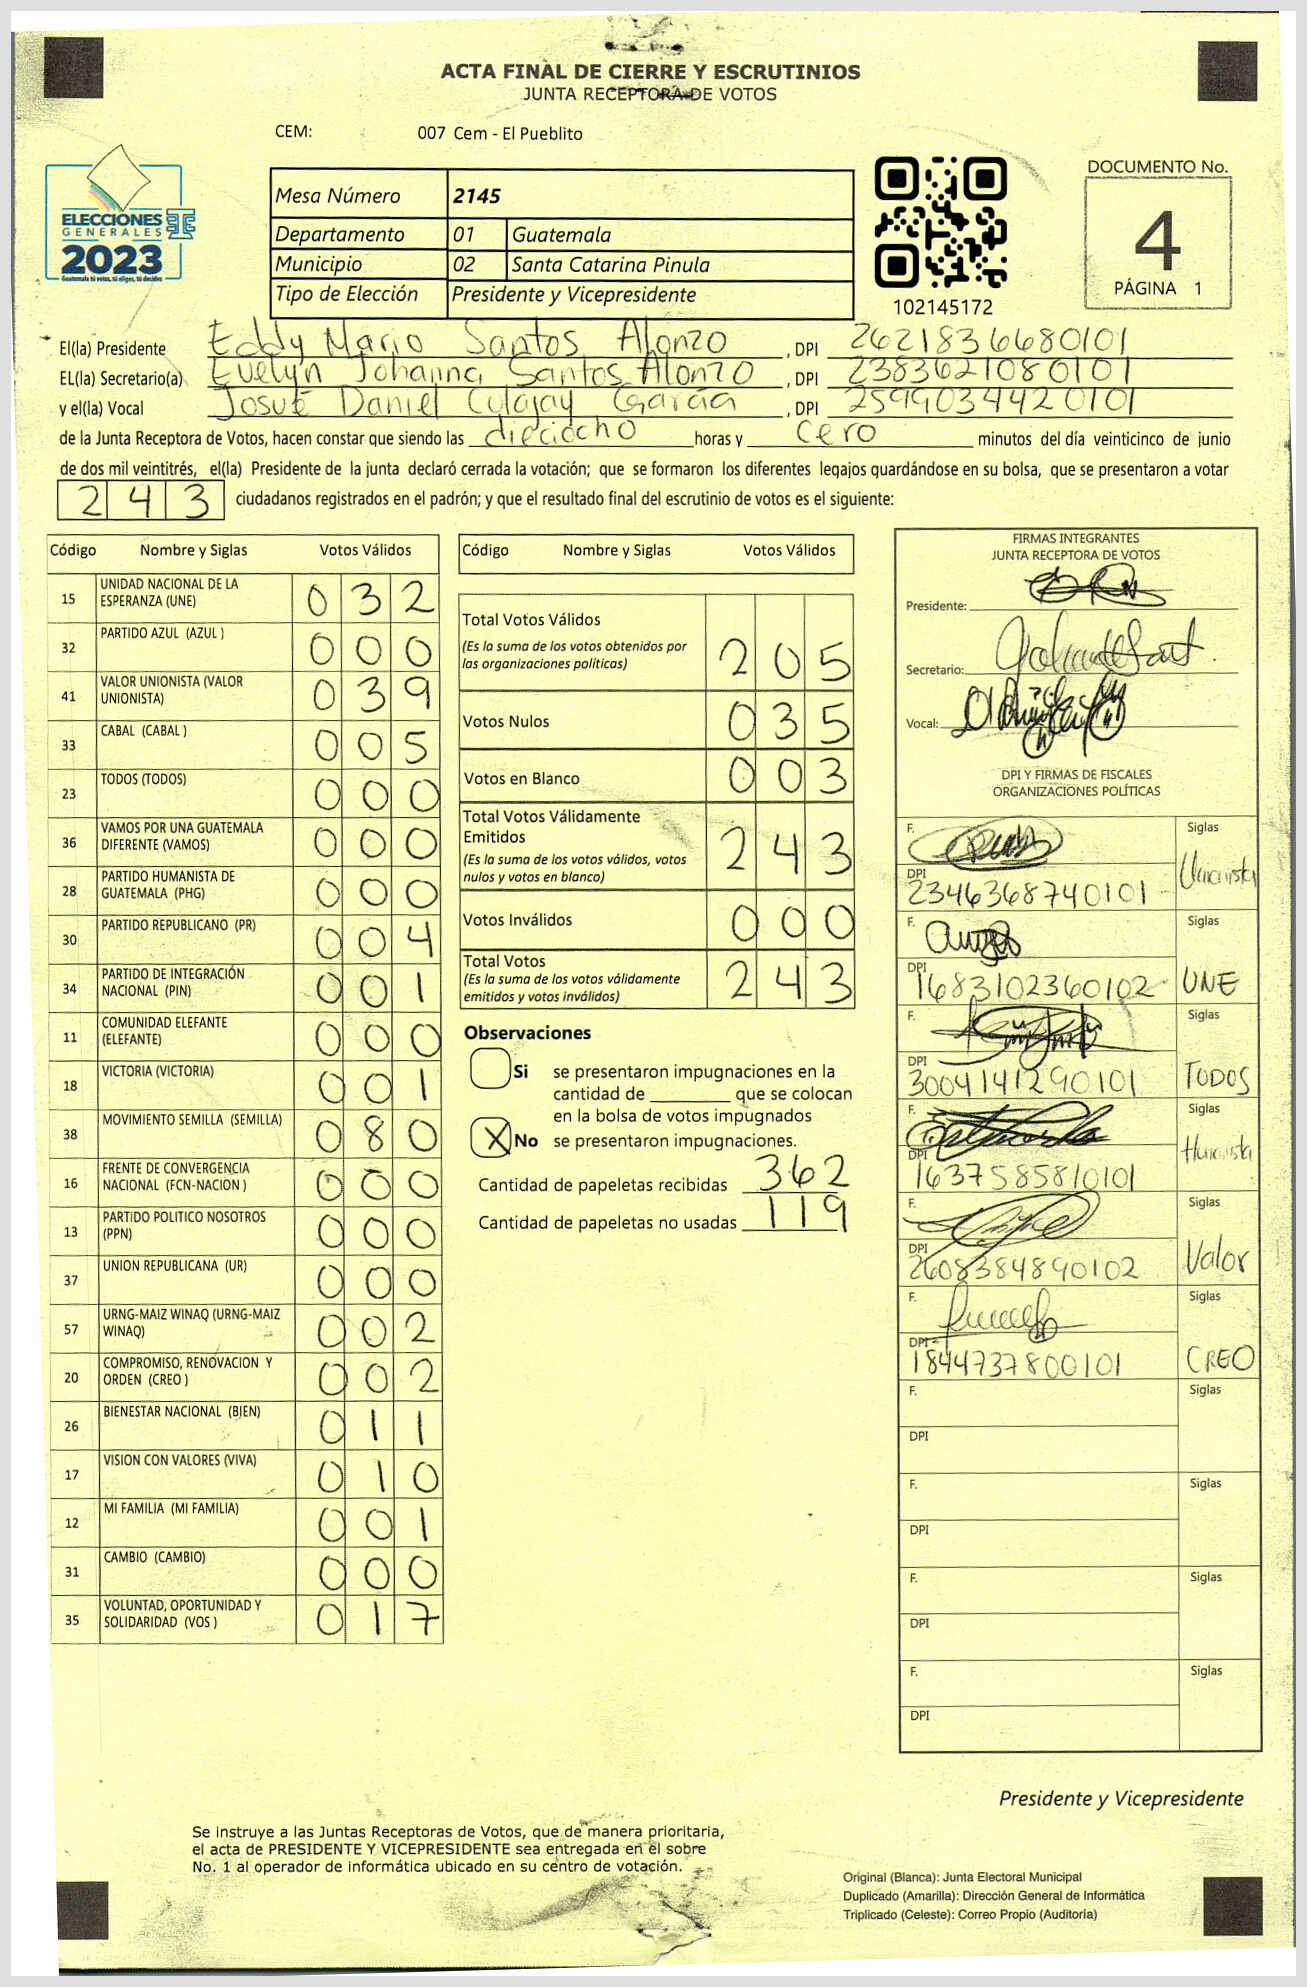 ACTA FINAL DE CIERRE Y ESCRUTINIOS
JUNTA RECEPTORA DE VOTOS
CEM: 007 Cem - El Pueblito
ELECCIONES
GENERALES
2023
Guatemala tú votas, tú eliges, tú decides
Mesa Número 2145
Departamento 01 Guatemala
Municipio 02 Santa Catarina Pinula
Tipo de Elección Presidente y Vicepresidente
102145172
DOCUMENTO No.
4
PÁGINA 1
El(la) Presidente Eddy Mario Santos Alonzo , DPI 2621836680101
EL(la) Secretario(a) Evelyn Johanna Santos Alonzo , DPI 2383621080101
y el(la) Vocal Josué Daniel Culajay García , DPI 2599034420101
de la Junta Receptora de Votos, hacen constar que siendo las dieciocho horas y cero minutos del día veinticinco de junio
de dos mil veintitrés, el(la) Presidente de la junta declaró cerrada la votación; que se formaron los diferentes legajos guardándose en su bolsa, que se presentaron a votar
243 ciudadanos registrados en el padrón; y que el resultado final del escrutinio de votos es el siguiente:
Código Nombre y Siglas Votos Válidos
15 UNIDAD NACIONAL DE LA ESPERANZA (UNE) 032
32 PARTIDO AZUL (AZUL ) 000
41 VALOR UNIONISTA (VALOR UNIONISTA) 039
33 CABAL (CABAL ) 005
23 TODOS (TODOS) 000
36 VAMOS POR UNA GUATEMALA DIFERENTE (VAMOS) 000
28 PARTIDO HUMANISTA DE GUATEMALA (PHG) 000
30 PARTIDO REPUBLICANO (PR) 004
34 PARTIDO DE INTEGRACIÓN NACIONAL (PIN) 001
11 COMUNIDAD ELEFANTE (ELEFANTE) 000
18 VICTORIA (VICTORIA) 001
38 MOVIMIENTO SEMILLA (SEMILLA) 080
16 FRENTE DE CONVERGENCIA NACIONAL (FCN-NACION ) 000
13 PARTIDO POLITICO NOSOTROS (PPN) 000
37 UNION REPUBLICANA (UR) 000
57 URNG-MAIZ WINAQ (URNG-MAIZ WINAQ) 002
20 COMPROMISO, RENOVACION Y ORDEN (CREO ) 002
26 BIENESTAR NACIONAL (BIEN) 011
17 VISION CON VALORES (VIVA) 010
12 MI FAMILIA (MI FAMILIA) 001
31 CAMBIO (CAMBIO) 000
35 VOLUNTAD, OPORTUNIDAD Y SOLIDARIDAD (VOS ) 017
Código Nombre y Siglas Votos Válidos
Total Votos Válidos
(Es la suma de los votos obtenidos por las organizaciones políticas) 205
Votos Nulos 035
Votos en Blanco 003
Total Votos Válidamente Emitidos
(Es la suma de los votos válidos, votos nulos y votos en blanco) 243
Votos Inválidos 000
Total Votos
(Es la suma de los votos válidamente emitidos y votos inválidos) 243
Observaciones
Si se presentaron impugnaciones en la
cantidad de ________ que se colocan
en la bolsa de votos impugnados
X No se presentaron impugnaciones.
Cantidad de papeletas recibidas 362
Cantidad de papeletas no usadas 119
FIRMAS INTEGRANTES
JUNTA RECEPTORA DE VOTOS
Presidente:
Secretario:
Vocal:
DPI Y FIRMAS DE FISCALES
ORGANIZACIONES POLÍTICAS
F. Siglas
DPI 2346368740101 Unionista
F. Siglas
DPI 1683102360102 UNE
F. Siglas
DPI 3004141290101 TODOS
F. Siglas
DPI 1637585810101 Humanista
F. Siglas
DPI 2608384890102 Valor
F. Siglas
DPI 1844737800101 CREO
F. Siglas
DPI
F. Siglas
DPI
F. Siglas
DPI
F. Siglas
DPI
Presidente y Vicepresidente
Se instruye a las Juntas Receptoras de Votos, que de manera prioritaria,
el acta de PRESIDENTE Y VICEPRESIDENTE sea entregada en el sobre
No. 1 al operador de informática ubicado en su centro de votación.
Original (Blanca): Junta Electoral Municipal
Duplicado (Amarilla): Dirección General de Informática
Triplicado (Celeste): Correo Propio (Auditoría)